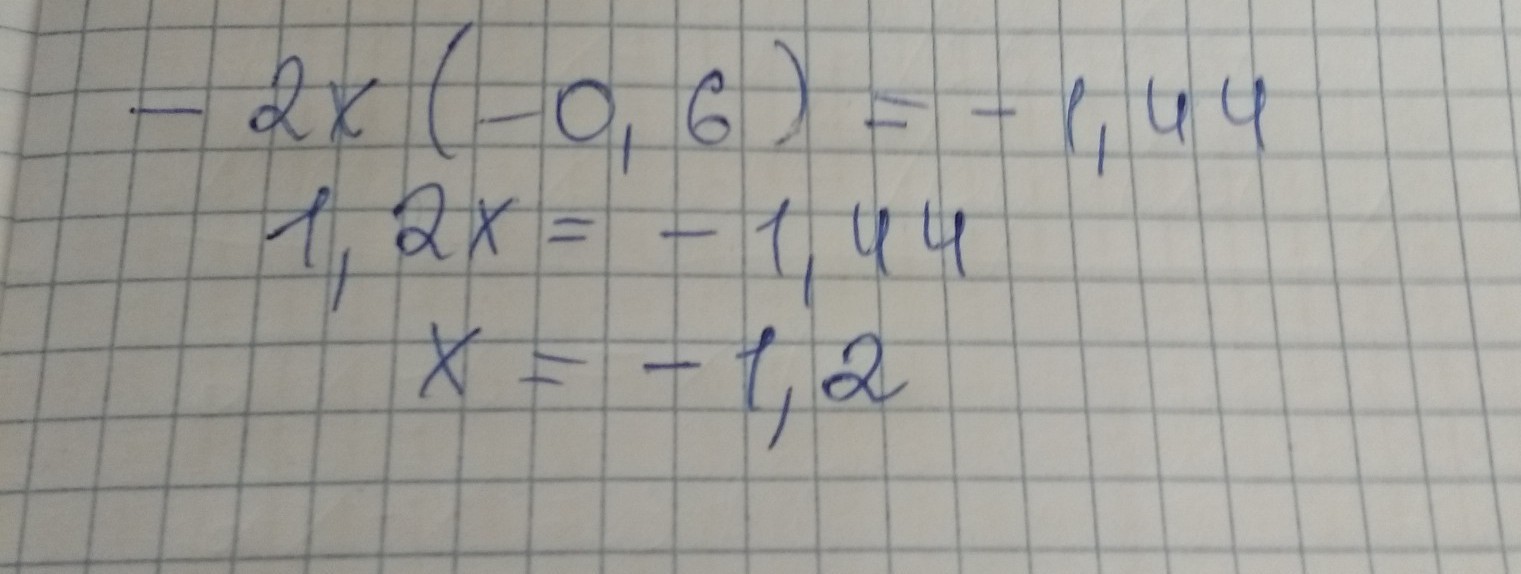 - 2x (-0,6) = - 1,44
1,2x = - 1,44
x = - 1,2